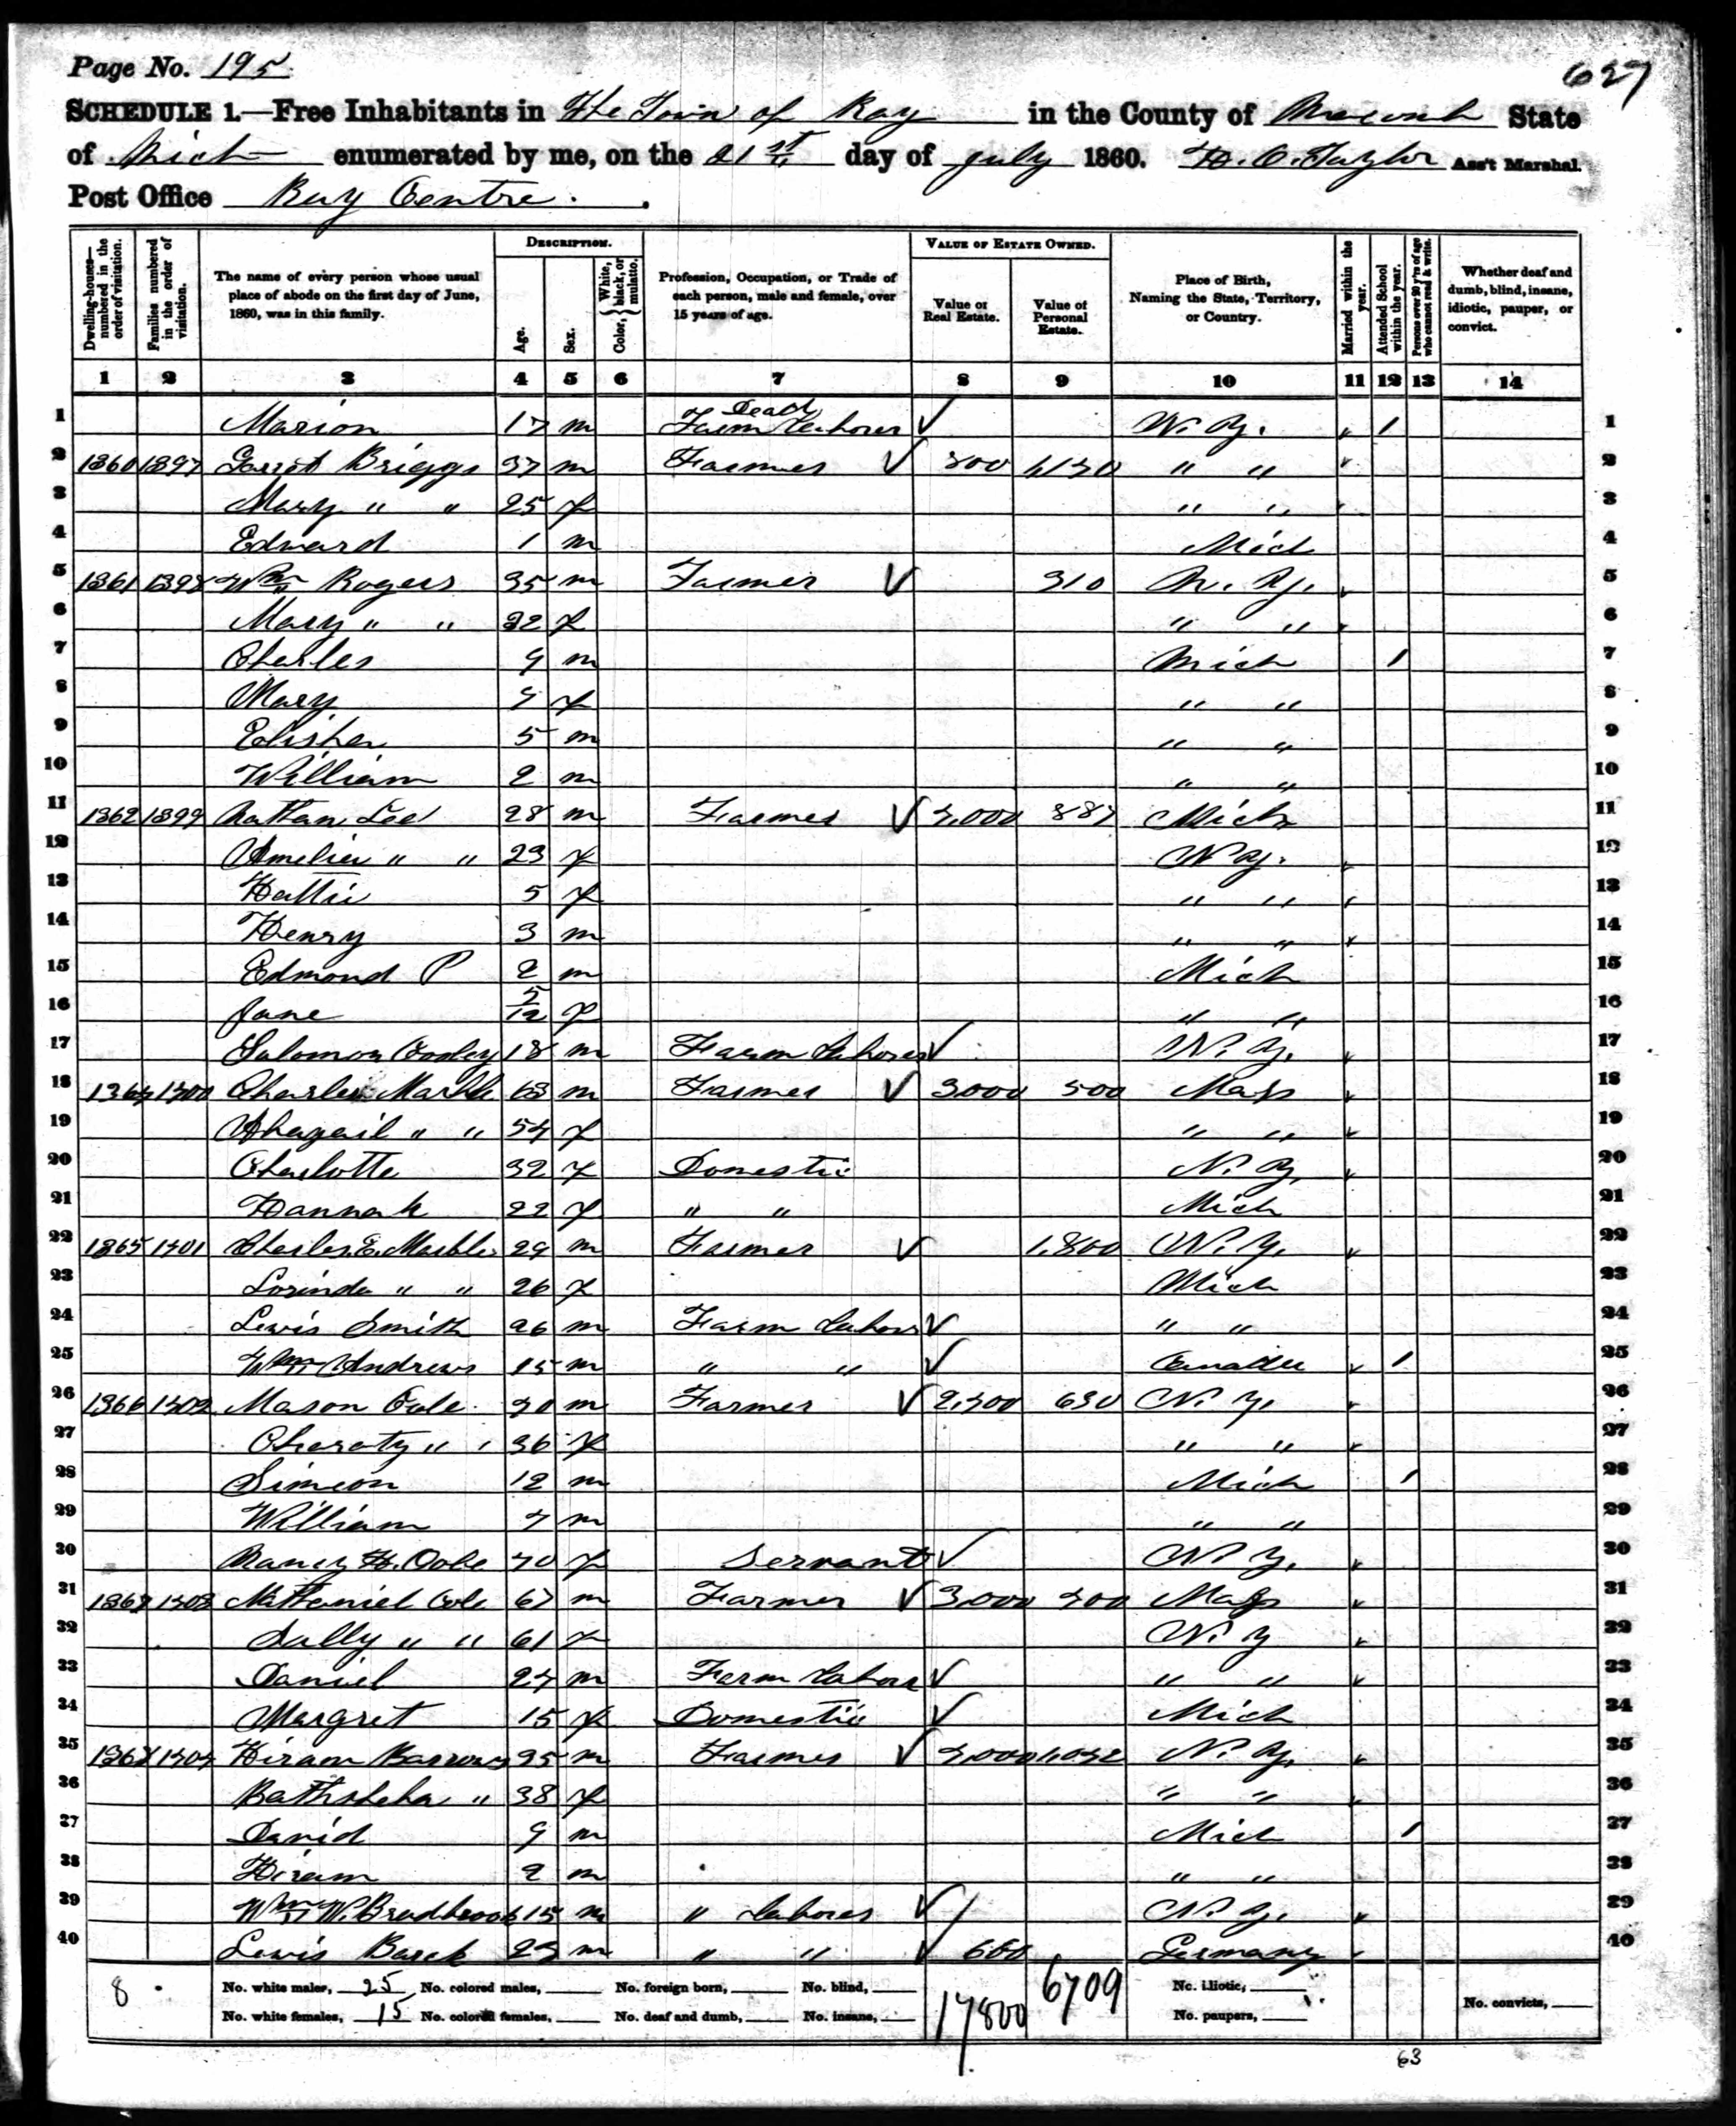 Page No. 195.
627
SCHEDULE 1.—Free Inhabitants in The Town of Ray in the County of Macomb State
of Mich enumerated by me, on the 21st day of July 1860. H. O. Taylor Ass't Marshal.
Post Office Ray Centre.
DESCRIPTION. VALUE OF ESTATE OWNED.
Dwelling-houses—numbered in the order of visitation. Families numbered in the order of visitation. The name of every person whose usual place of abode on the first day of June, 1860, was in this family. Age. Sex. Color, White, black, or mulatto. Profession, Occupation, or Trade of each person, male and female, over 15 years of age. Value of Real Estate. Value of Personal Estate. Place of Birth, Naming the State, Territory, or Country. Married within the year. Attended School within the year. Persons over 20 y'rs of age who cannot read & write. Whether deaf and dumb, blind, insane, idiotic, pauper, or convict.
1 2 3 4 5 6 7 8 9 10 11 12 13 14
1 Marion 17 m Dead Farm Laborer N. Y. 1 1
2 1360 1397 Briggs 37 m Farmer " " 2
3 Mary " " 25 f " " 3
4 Edward 1 m Mich 4
5 1361 1398 Wm Rogers 35 m Farmer 310 N. Y. 5
6 Mary " " 32 f " " 6
7 Charles 9 m Mich 1 7
8 Mary f " " 8
9 Elisha 5 m " " 9
10 William 2 m " " 10
11 1362 1399 Nathan Lee 28 m Farmer 4,000 387 Mich 11
12 Amelia " " 23 f N. Y. 12
13 Hattie 5 f " " 13
14 Henry 3 m " " 14
15 Edmond P 2 m Mich 15
16 Jane 5/12 f " " 16
17 Solomon 18 m Farm Laborer N. Y. 17
18 1364 1400 Charles Marble 63 m Farmer 3000 500 Mass 18
19 Abagail " " 54 f " " 19
20 Charlotte 32 f Domestic N. Y. 20
21 Hannah 22 f " " Mich 21
22 1365 1401 Charles E. Marble 29 m Farmer 1,800 N. Y. 22
23 Lorinda " " 26 f Mich 23
24 Lewis Smith 26 m Farm Labor " " 24
25 Wm Andrews 15 m " " Canada 1 25
26 1366 1402 Mason Cole 40 m Farmer 2,400 630 N. Y. 26
27 Charaty " " 36 f " " 27
28 Simeon 12 m Mich 1 28
29 William m " " 29
30 Nancy H. Cole f Servant N. Y. 30
31 1367 1403 Nathaniel Cole 67 m Farmer 3,000 400 Mass 31
32 Sally " " 61 f N. Y 32
33 Daniel 24 m Farm Labore " " 33
34 Margret 15 f Domestic Mich 34
35 1404 Hiram Barrows 35 m Farmer N. Y. 35
36 Bathsheba " 38 f " " 36
37 David 9 m Mich 1 37
38 Hiram 2 m " " 38
39 Wm W. 15 m " Laborer N. Y. 39
40 Lewis 23 m " " 600 Germany 40
8 No. white males, 25 No. colored males, No. foreign born, No. blind, 17800 6709 No. idiotic,
No. white females, 15 No. colored females, No. deaf and dumb, No. insane, No. paupers, No. convicts,
63